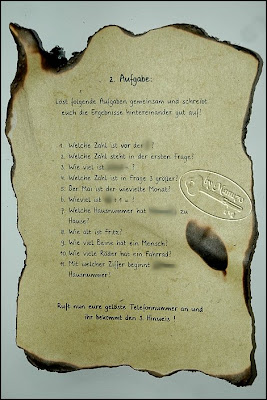 2. Aufgabe:
Löst folgende Aufgaben gemeinsam und schreibt
euch die Ergebnisse hintereinander gut auf!
1. Welche Zahl ist vor der
2. Welche Zahl steht in der ersten Frage?
3. Wie viel ist ?
4. Welche Zahl ist in Frage 3 größer?
5. Der Mai ist der wievielte Monat?
6. Wieviel ist + 1 = ?
7. Welche Hausnummer hat zu
Hause?
8. Wie alt ist Fritz?
9. Wie viel Beine hat ein Mensch?
10. Wie viele Räder hat ein Fahrrad?
11. Mit welcher Ziffer beginnt
Hausnummer?
Ruft nun eure gelöste Telefonnummer an und
ihr bekommt den 3. Hinweis!